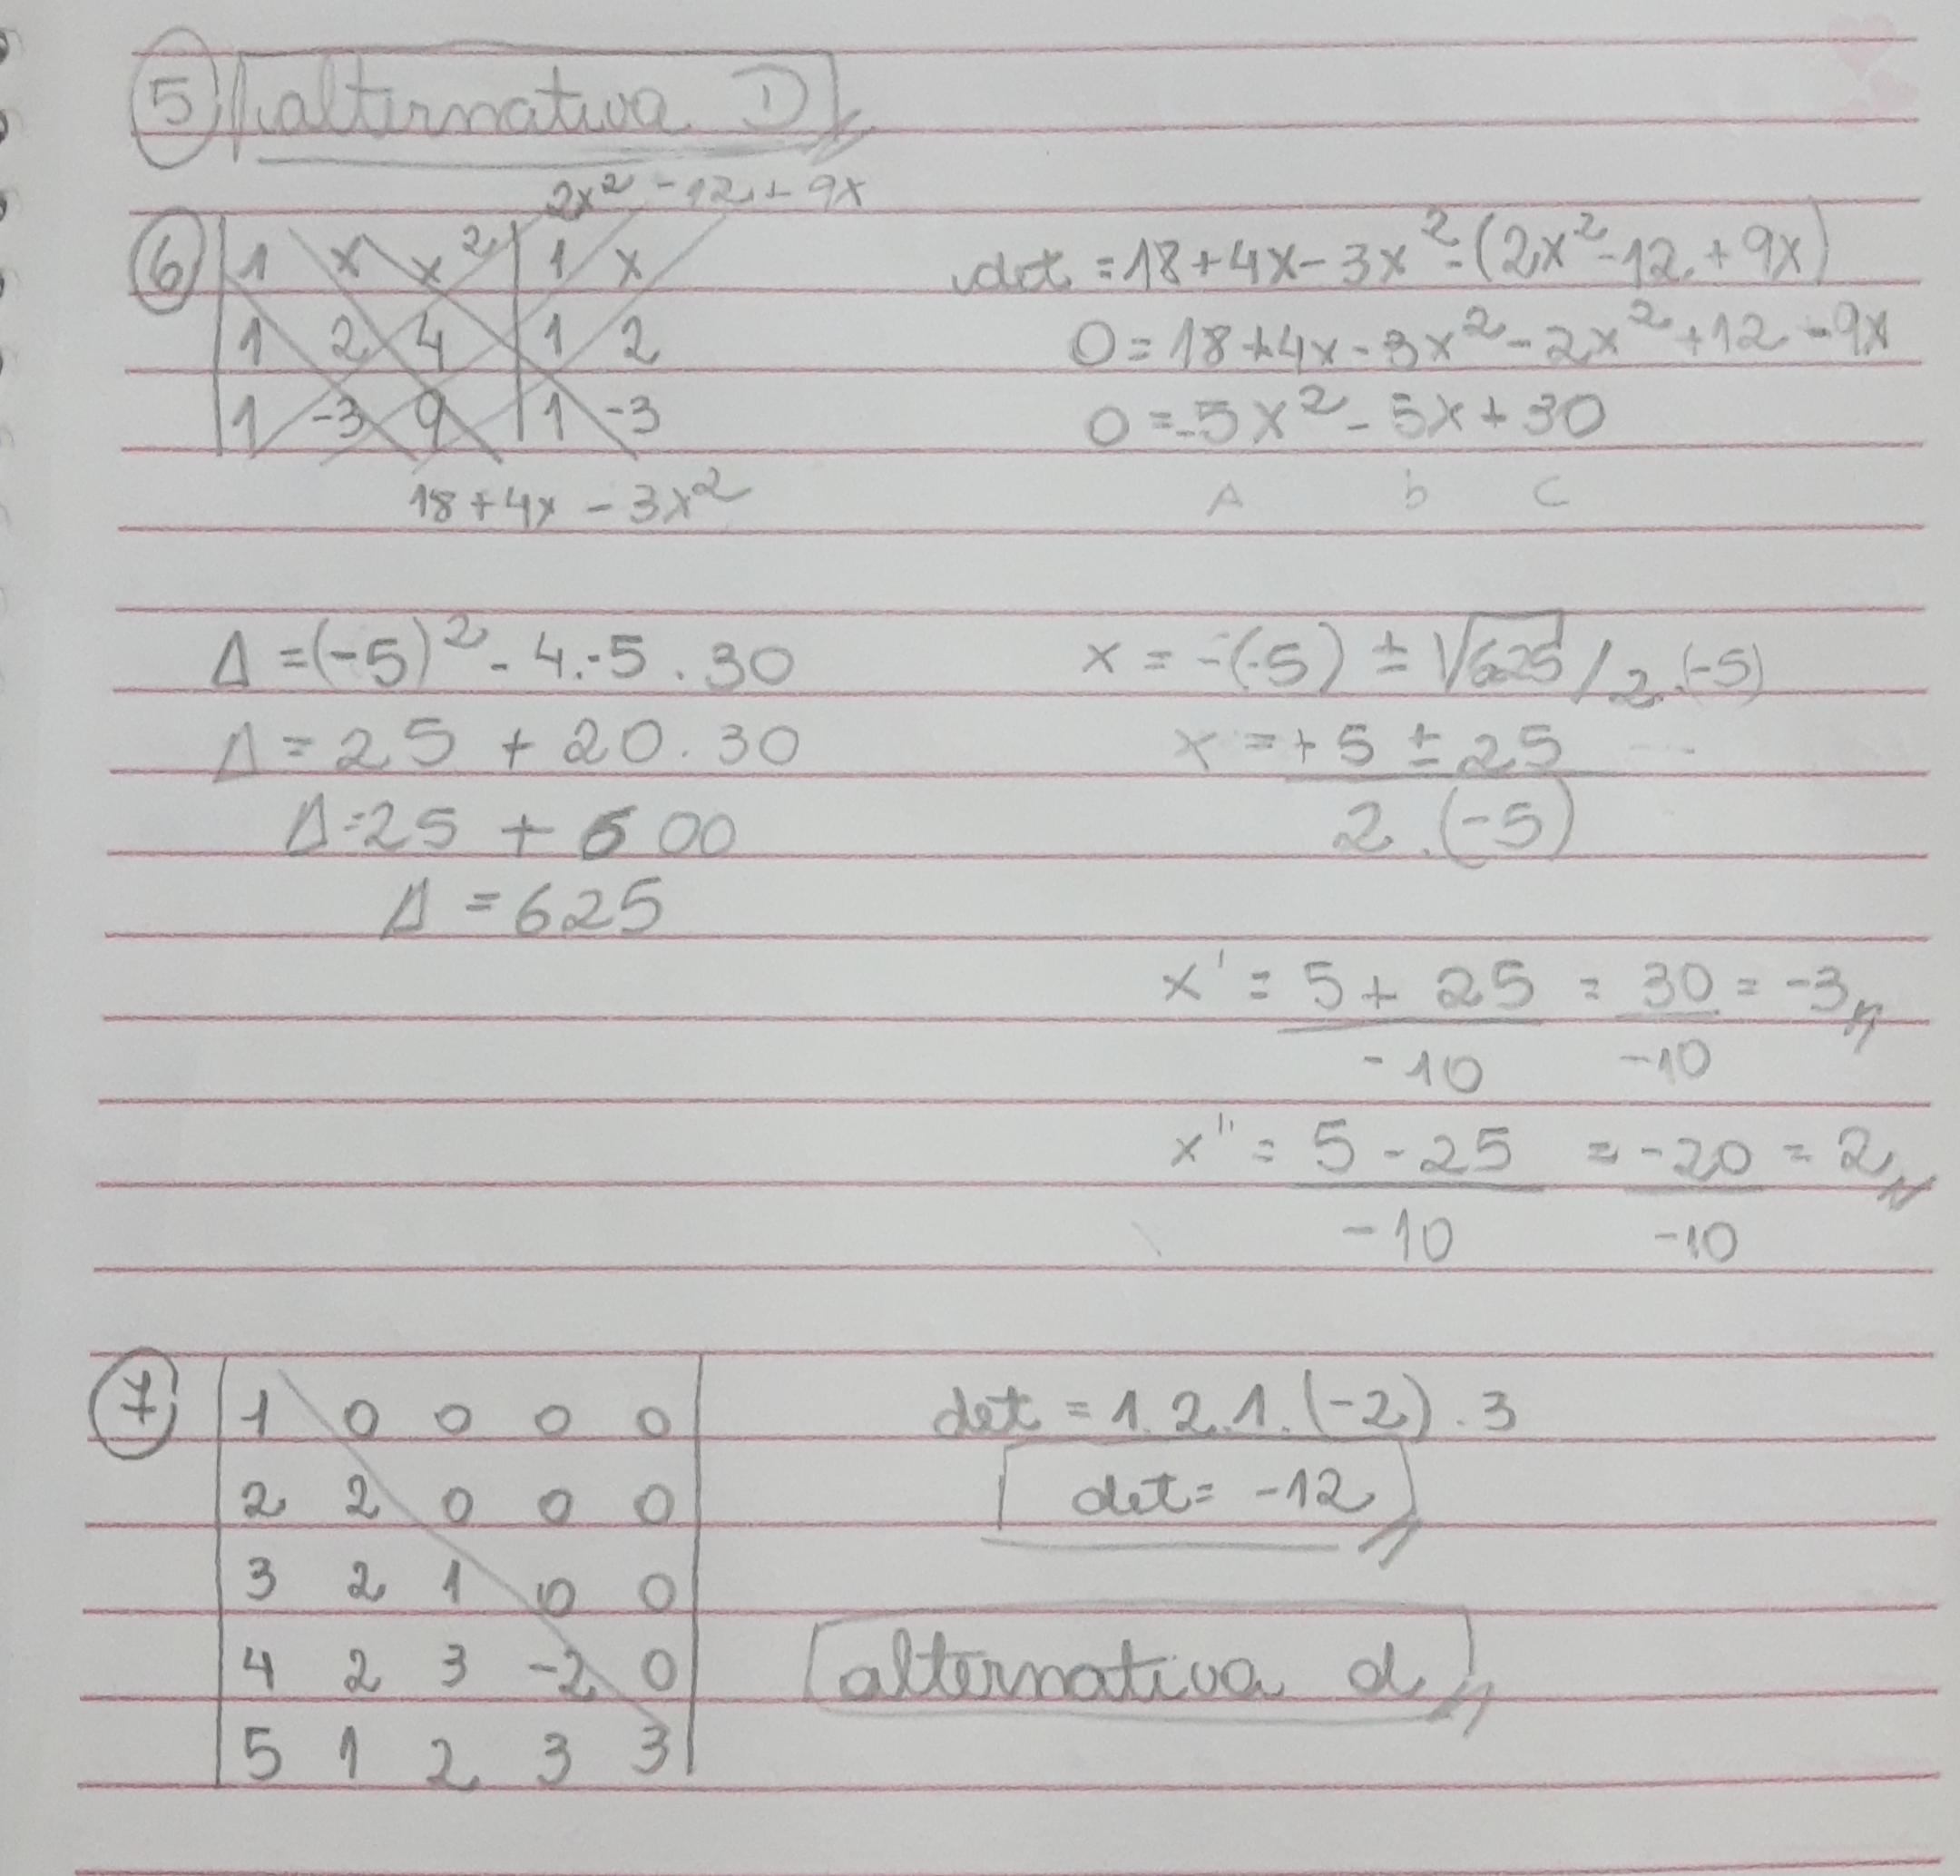 5 alternativa D
2x² - 12 + 9x
6 1 x x² 1 x
1 2 4 1 2
1 -3 9 1 -3
18 + 4x - 3x²
det = 18 + 4x - 3x² - (2x² - 12 + 9x)
0 = 18 + 4x - 3x² - 2x² + 12 - 9x
0 = -5x² - 5x + 30
A b C
Δ = (-5)² - 4.-5.30
Δ = 25 + 20.30
Δ = 25 + 600
Δ = 625
x = -(-5) ± √625 / 2.(-5)
x = +5 ± 25
2.(-5)
x' = 5 + 25 = 30 = -3
-10 -10
x'' = 5 - 25 = -20 = 2
-10 -10
7 1 0 0 0 0
2 2 0 0 0
3 2 1 0 0
4 2 3 -2 0
5 1 2 3 3
det = 1.2.1.(-2).3
det = -12
alternativa d